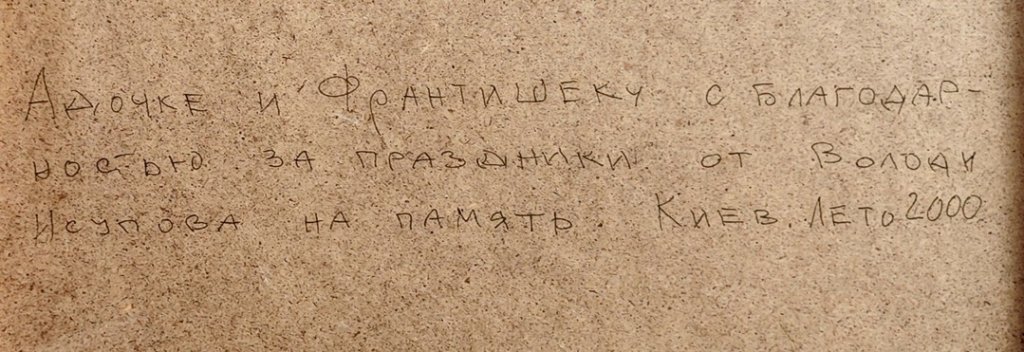 Адочке и Франтишеку с благодар-
ностью за праздники от Володи
Исупова на память. Киев. Лето 2000